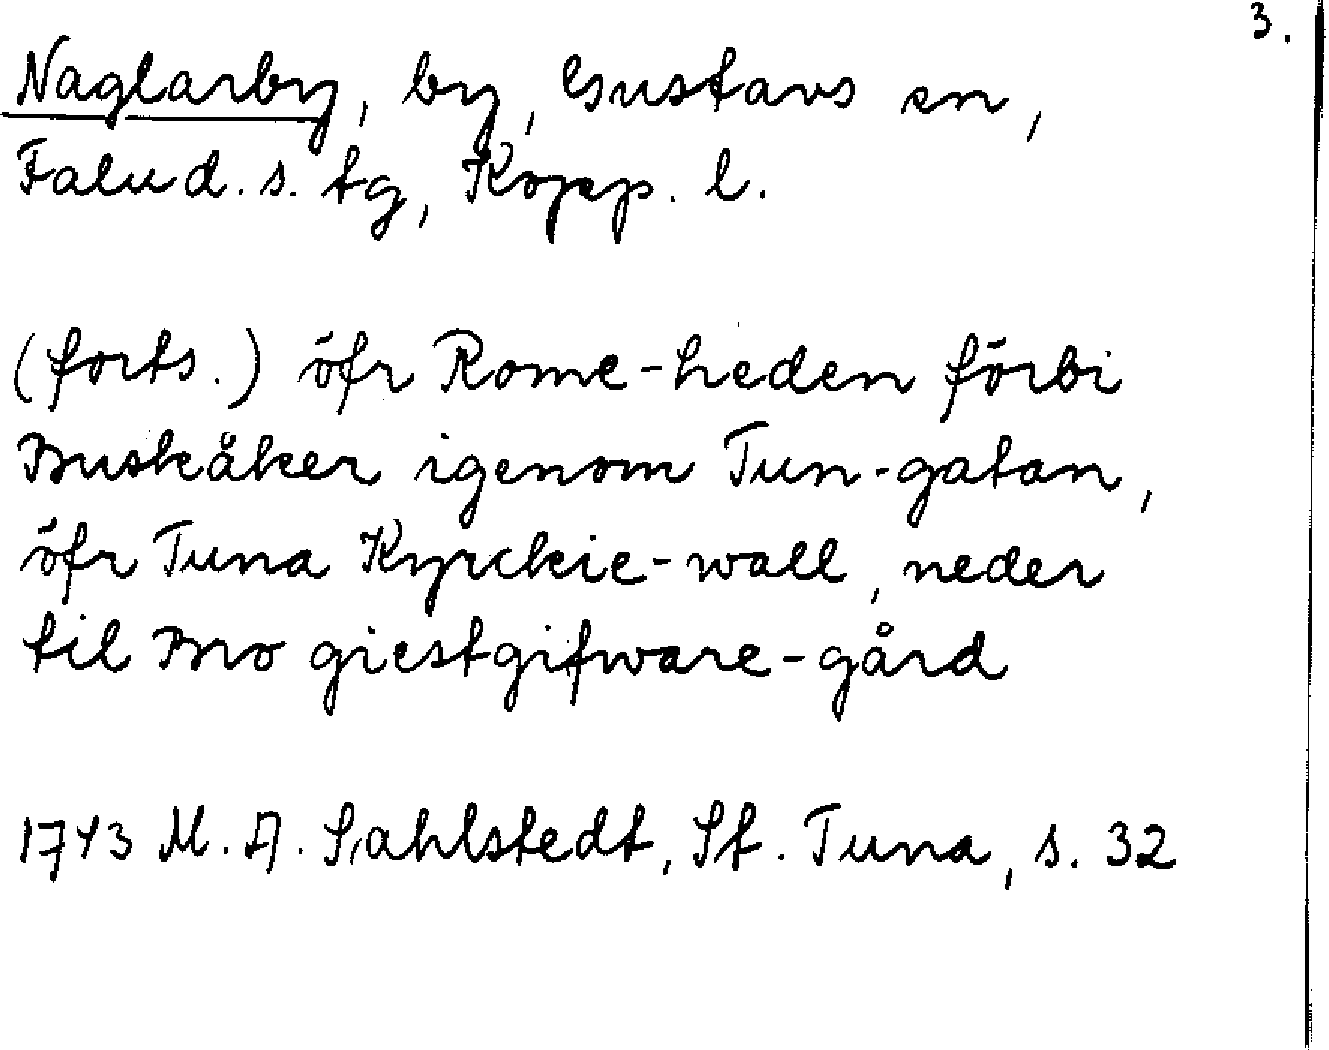 3.
Naglarby, by, Gustavs sn,
Falu d. s. tg, Kopp. l.
(forts.) öfr Rome-heden förbi
Buskåker igenom Tun-gatan,
öfr Tuna Kyrckie-wall, neder
til Bro giestgifware-gård
1743 M. A. Sahlstedt, St. Tuna, s. 32